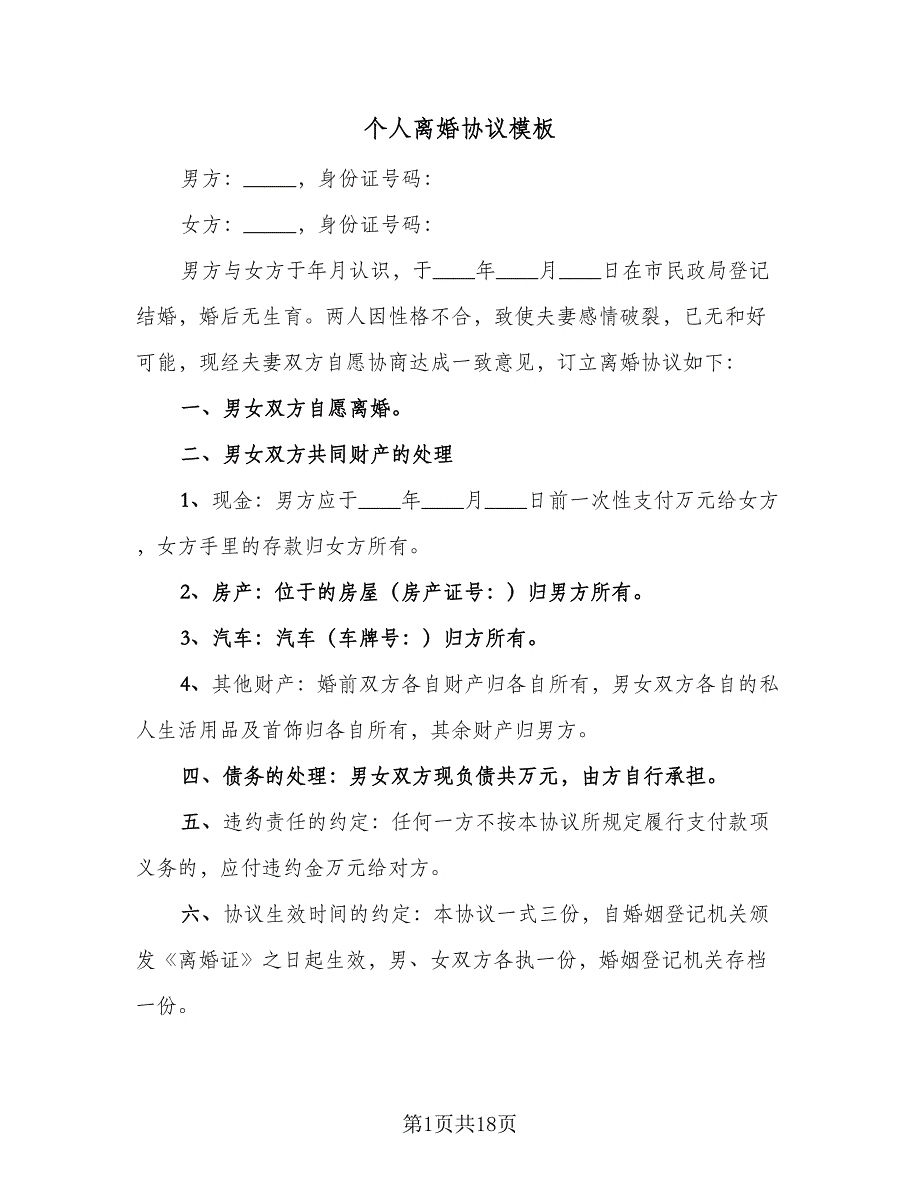 个人离婚协议模板
男方：_____，身份证号码：
女方：_____，身份证号码：
男方与女方于年月认识，于____年____月____日在市民政局登记
结婚，婚后无生育。两人因性格不合，致使夫妻感情破裂，已无和好
可能，现经夫妻双方自愿协商达成一致意见，订立离婚协议如下：
一、男女双方自愿离婚。
二、男女双方共同财产的处理
1、现金：男方应于____年____月____日前一次性支付万元给女方
，女方手里的存款归女方所有。
2、房产：位于的房屋（房产证号：）归男方所有。
3、汽车：汽车（车牌号：）归方所有。
4、其他财产：婚前双方各自财产归各自所有，男女双方各自的私
人生活用品及首饰归各自所有，其余财产归男方。
四、债务的处理：男女双方现负债共万元，由方自行承担。
五、违约责任的约定：任何一方不按本协议所规定履行支付款项
义务的，应付违约金万元给对方。
六、协议生效时间的约定：本协议一式三份，自婚姻登记机关颁
发《离婚证》之日起生效，男、女双方各执一份，婚姻登记机关存档
一份。
第1页共18页